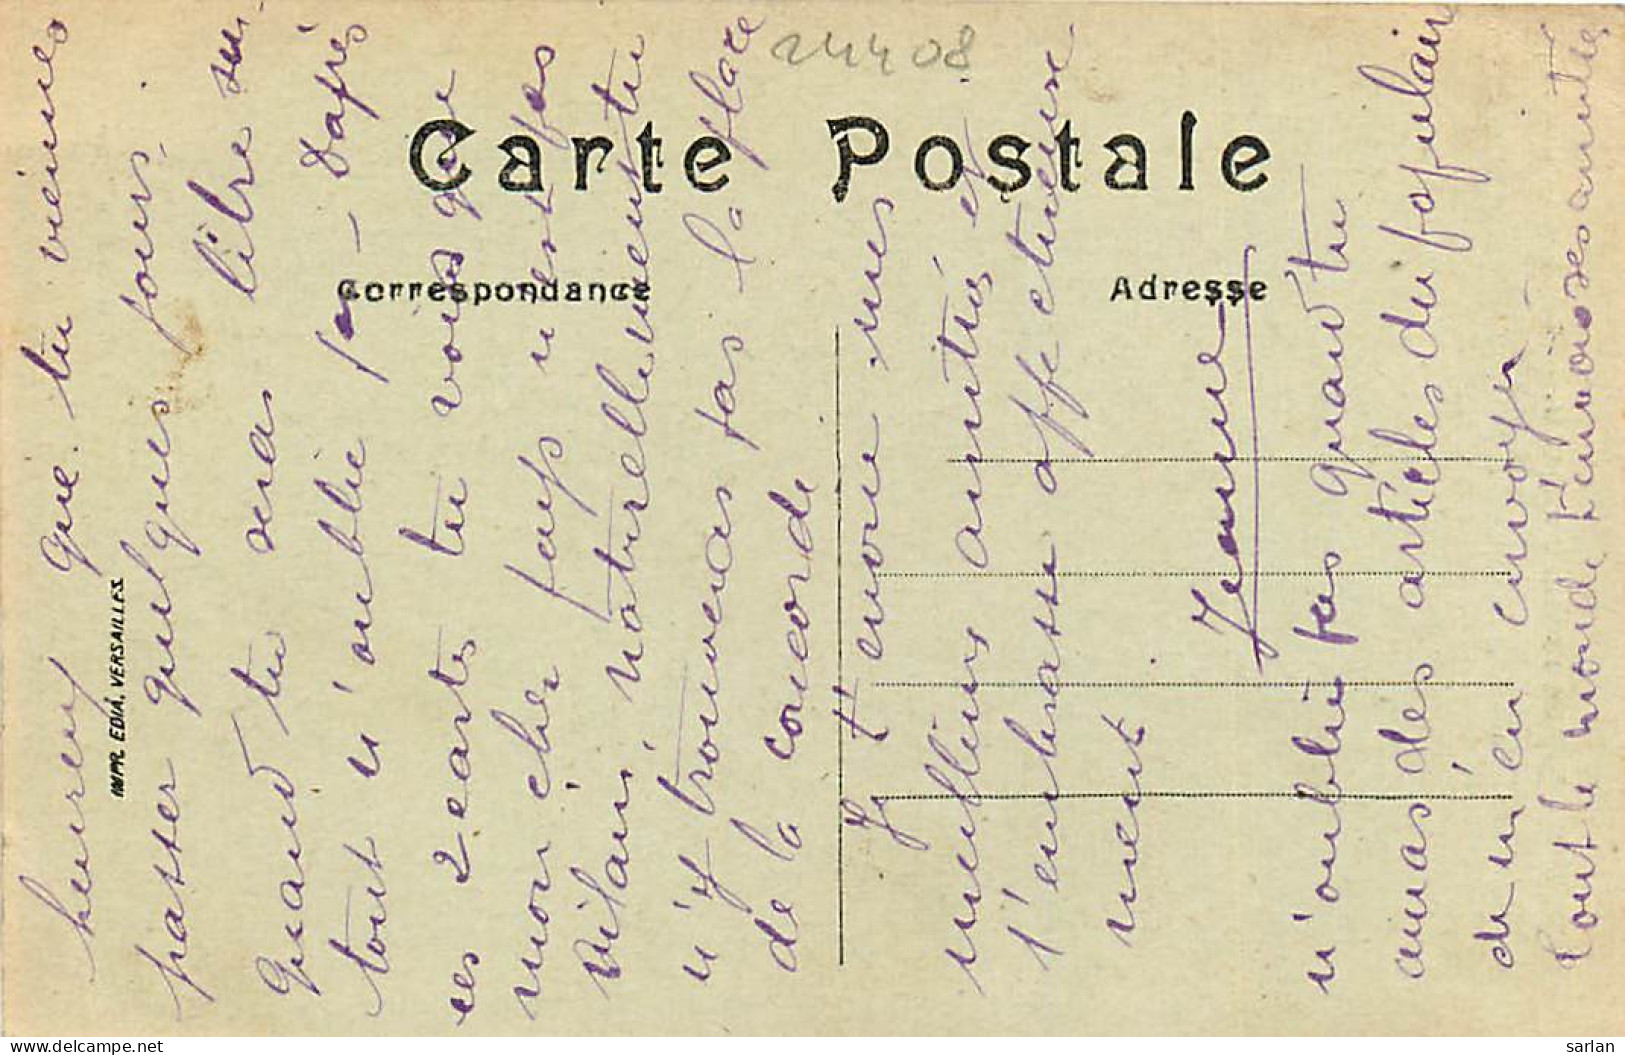 24408
Carte Postale
Correspondance
Adresse
IMPR. EDIA. VERSAILLES
heureux que tu viennes
passer quelques jours.
Quand tu seras libre sur-
tout n'oublie pas - Dapres
ces 2 cartes tu vois que
mon cher pays n'est pas
vilain, naturellement tu
n'y trouveras pas la place
de la concorde
Je t'envoie mes
meilleurs amitiés et
t'embrasse affectueuse
ment
Jeanne
n'oublie pas quand tu
auras des articles du populaire
du m'en envoyé
tout le monde t'envois ses amitiés
delcampe.net
sarlan